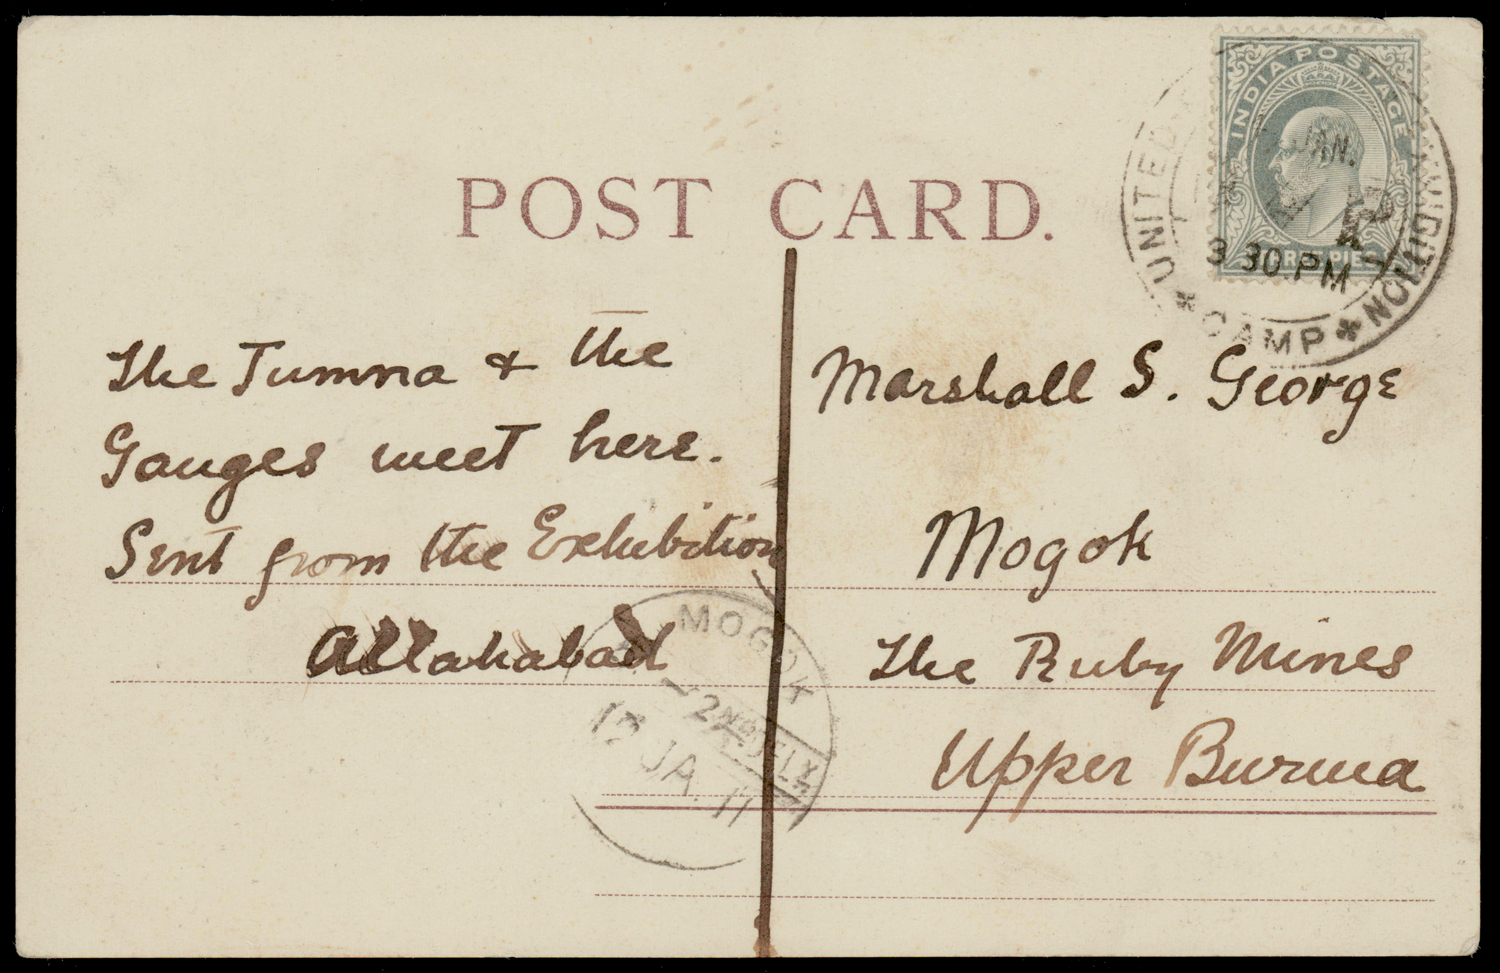 POST CARD.
INDIA POSTAGE
JAN.
3 30.PM
UNITED
EXHIBITION
CAMP
The Jumna & the
Ganges meet here.
Sent from the Exhibition
Allahabad
Marshall S. George
Mogok
The Ruby Mines
Upper Burma
MOGOK
2ND DLY
12 JA. 11